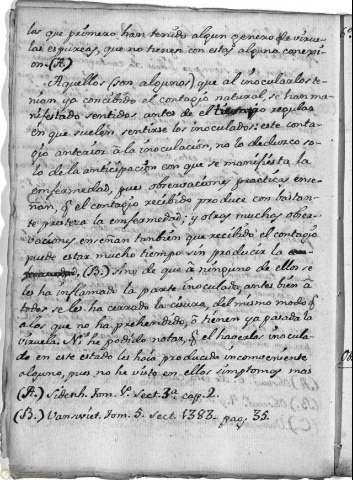 las que primero han tenido algun genero de virue-
las espureas, que no tienen con estas alguna conexi-
on. (A.)
Aquellos (son algunos) que al inocularlos te-
nian ya concibido el contagio natural, se han ma-
nifestado sentidos antes de el tiempo regular
en que suelen sentirse los inoculados: este conta-
gio anterior à la inoculación, no lo deduzco so-
lo de la anticipacion con que se manifiesta la
enfermedad, pues observacions practicas ense-
ñan, q̃ el contagio recibido produce con bastan-
te presteza la enfermedad; y otras muchas obser-
vacions enseñan tambien que recibido el contagio
puede estar mucho tiempo sin producir la
(B.) sino de que à ninguno de ellos se
les ha inflamado la parte inoculada, antes bien à
todos se les ha cerrado la cisura, del mismo modo q̃
à los que no ha prehendido, ò tienen ya pasada la
viruela. No hè podido notar, q̃ el haverlos inocula-
do en este estado les haia producido inconveniente
alguno, pues no he visto en ellos simptomas mas
(A.) Sidenh. Tom. 1º. Sect. 3ª. cap. 2.
(B.) Vanswiet. Tom. 5. sect. 1383. pag. 35.